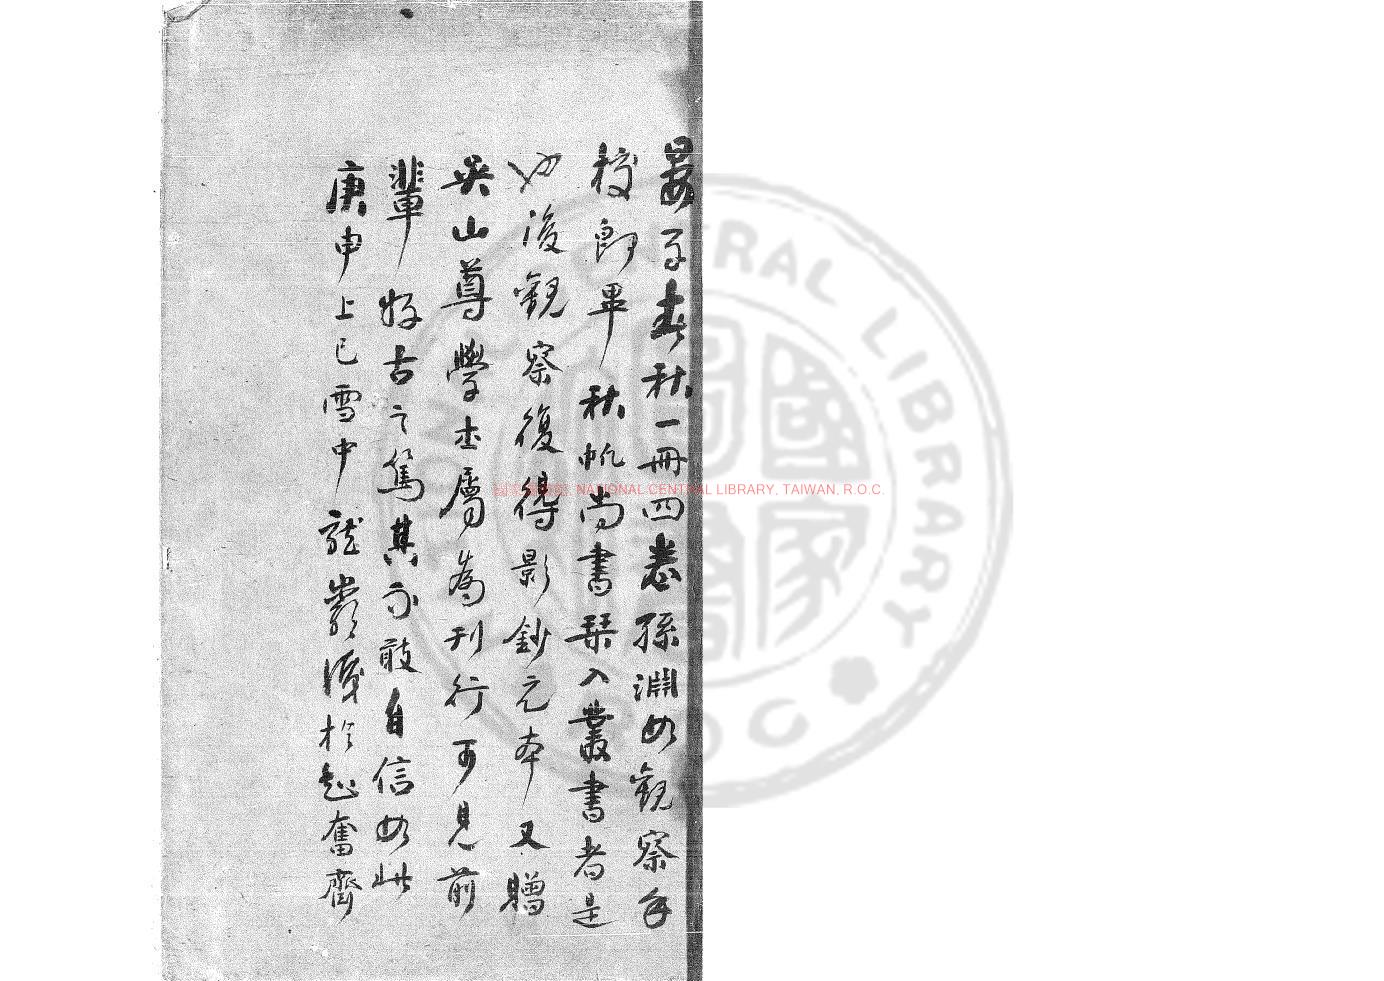 晏子春秋一冊四卷孫淵如觀察手
校即畢秋帆尚書栞入叢書者是
也後觀察復得影鈔元本又贈
吳山尊學士屬為刊行可見前
輩好古之篤其不敢自信如此
庚申上巳雪中 識於起奮齋
國家圖書館 NATIONAL CENTRAL LIBRARY, TAIWAN, R.O.C.
CENTRAL LIBRARY
ROC